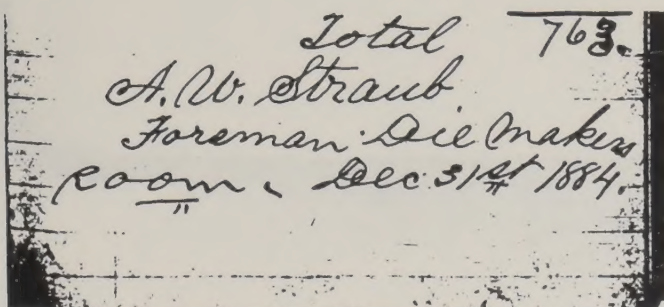 Total 763.
A. W. Straub
Foreman Die Makers
room. Dec 31st 1884.